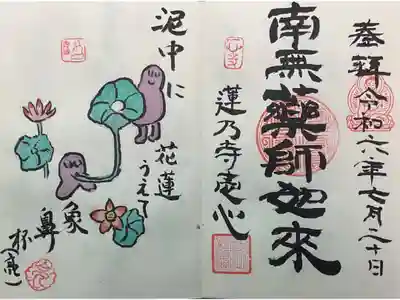 奉拝 令和六年七月二十日
南無薬師如來
蓮乃寺
泥中に
花蓮
うえて
象
鼻
杯